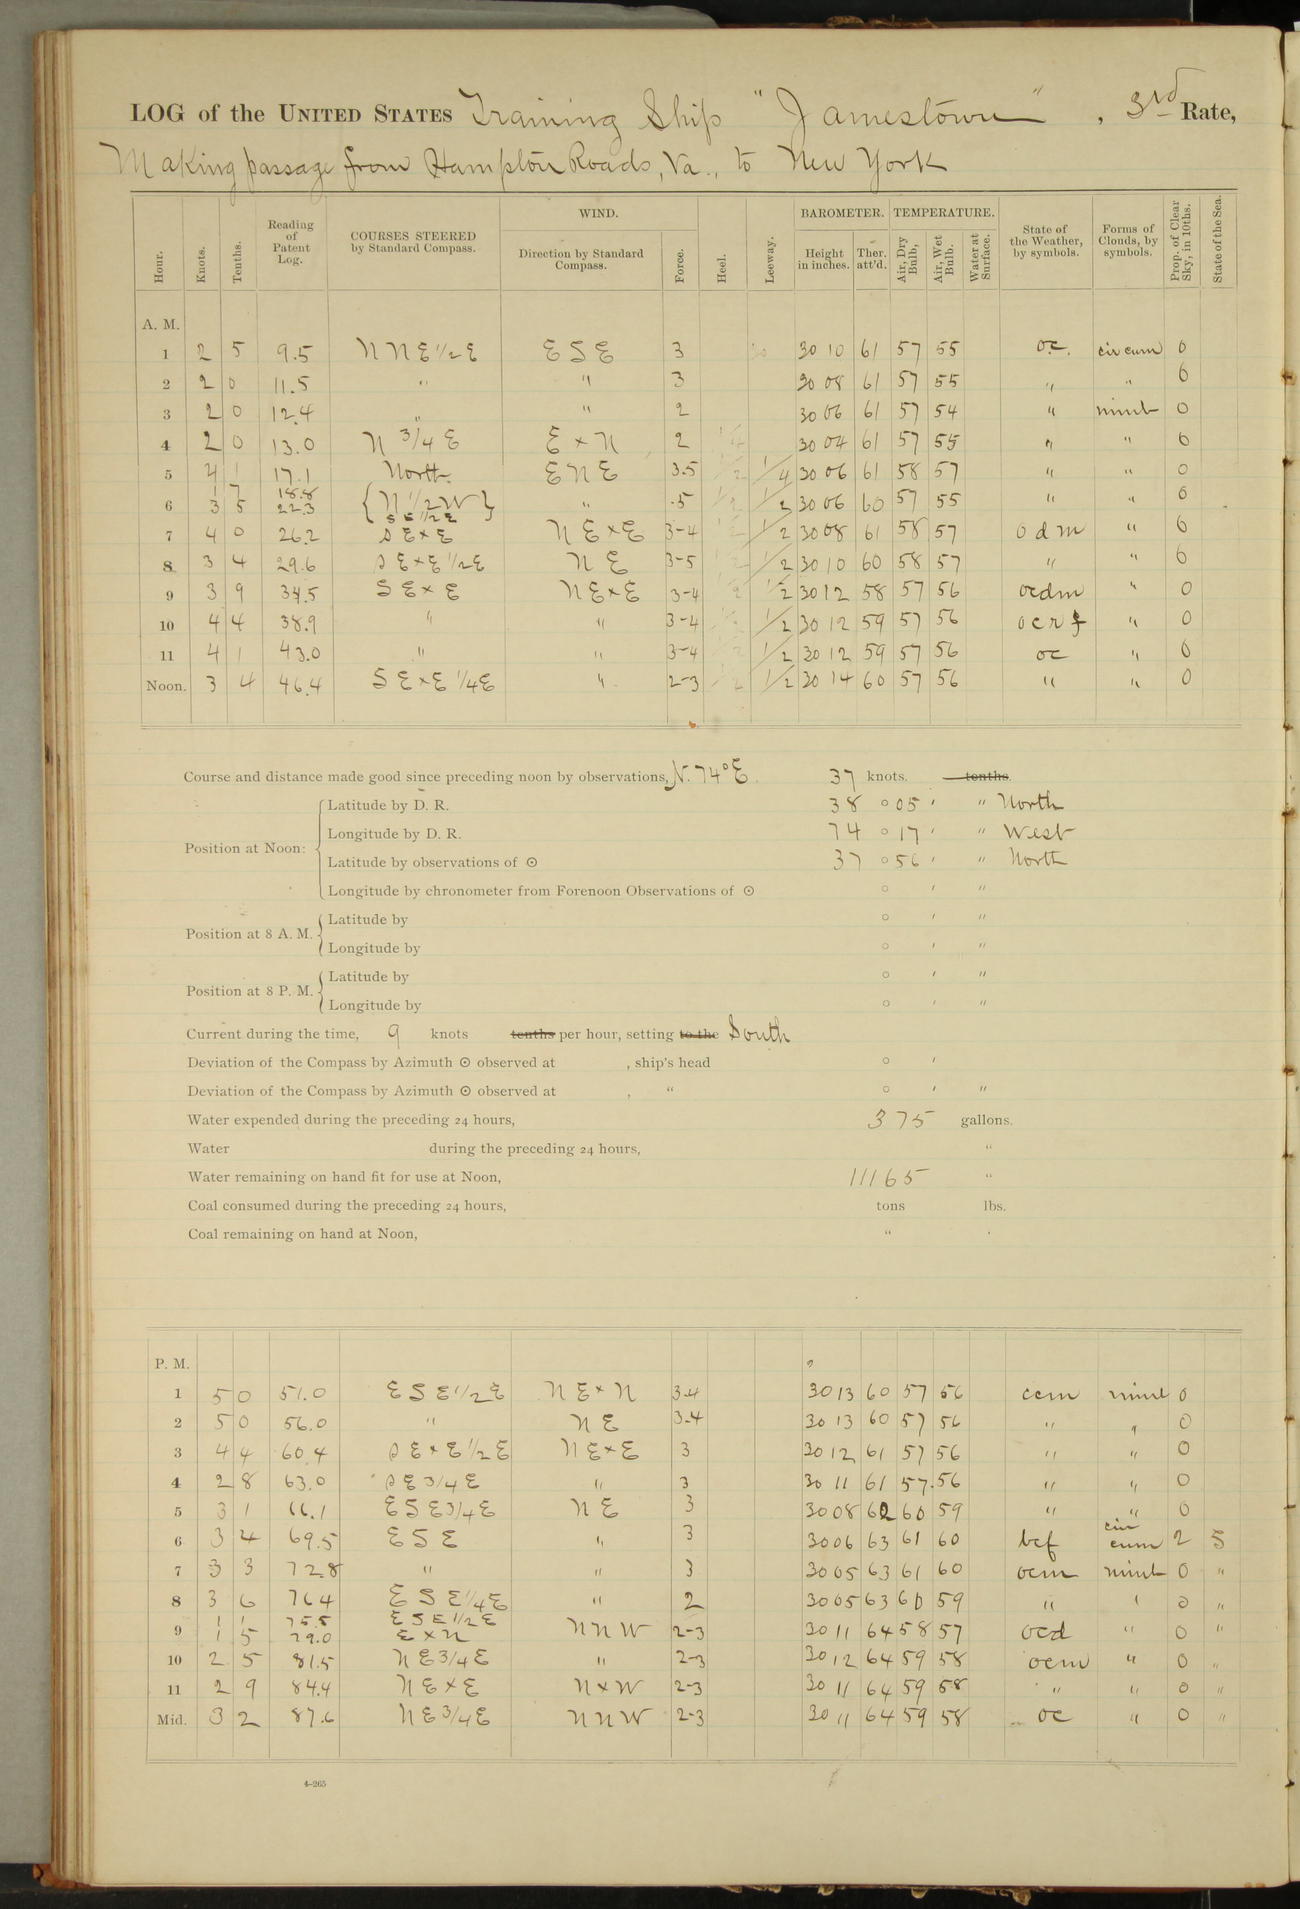 LOG of the UNITED STATES Training Ship "Jamestown", 3rd Rate,
Making passage from Hampton Roads, Va., to New York
Hour. Knots. Tenths. Reading of Patent Log. COURSES STEERED by Standard Compass. WIND. Direction by Standard Compass. Force. Heel. Leeway. BAROMETER. Height in inches. Ther. att'd. TEMPERATURE. Air, Dry Bulb, Air, Wet Bulb. Water at Surface. State of the Weather, by symbols. Forms of Clouds, by symbols. Prop. of Clear Sky, in 10ths. State of the Sea.
A. M.
1 2 5 9.5 NNE 1/2 E ESE 3 30 10 61 57 55 oc. cir cum 0
2 2 0 11.5 " " 3 30 08 61 57 55 " " 0
3 2 0 12.4 " " 2 30 06 61 57 54 " nimb 0
4 2 0 13.0 N 3/4 E E x N 2 30 04 61 57 55 " " 0
5 4 1 17.1 North ENE 3.5 1/4 30 06 61 58 57 " " 0
1 7 18.8
6 3 5 22.3 { N 1/2 W } " .5 1/2 30 06 60 57 55 " " 0
S E 1/2 E
7 4 0 26.2 S E x E N E x E 3-4 1/2 30 08 61 58 57 o d m " 0
8 3 4 29.6 S E x E 1/2 E N E 3-5 1/2 30 10 60 58 57 " " 0
9 3 9 34.5 S E x E N E x E 3-4 1/2 30 12 58 57 56 ocdm " 0
10 4 4 38.9 " " 3-4 1/2 30 12 59 57 56 o c r f " 0
11 4 1 43.0 " " 3-4 1/2 30 12 59 57 56 oc " 0
Noon. 3 4 46.4 S E x E 1/4 E " 2-3 1/2 30 14 60 57 56 " " 0
Course and distance made good since preceding noon by observations, N. 74° E. 37 knots. tenths.
Position at Noon:
Latitude by D. R. 38 ° 05 ' " North
Longitude by D. R. 74 ° 17 ' " West
Latitude by observations of ☉ 37 ° 56 ' " North
Longitude by chronometer from Forenoon Observations of ☉ ° ' "
Position at 8 A. M.
Latitude by ° ' "
Longitude by ° ' "
Position at 8 P. M.
Latitude by ° ' "
Longitude by ° ' "
Current during the time, 9 knots tenths per hour, setting to the South
Deviation of the Compass by Azimuth ☉ observed at , ship's head ° '
Deviation of the Compass by Azimuth ☉ observed at , " ° ' "
Water expended during the preceding 24 hours, 375 gallons.
Water during the preceding 24 hours, "
Water remaining on hand fit for use at Noon, 11165 "
Coal consumed during the preceding 24 hours, tons lbs.
Coal remaining on hand at Noon, "
P. M.
1 5 0 51.0 ESE 1/2 E N E x N 3-4 30 13 60 57 56 ocm nimb 0
2 5 0 56.0 " N E 3-4 30 13 60 57 56 " " 0
3 4 4 60.4 S E x E 1/2 E N E x E 3 30 12 61 57 56 " " 0
4 2 8 63.0 S E 3/4 E " 3 30 11 61 57 56 " " 0
5 3 1 66.1 ESE 3/4 E N E 3 30 08 62 60 59 " " 0
6 3 4 69.5 ESE " 3 30 06 63 61 60 bcf cir cum 2 S
7 3 3 72.8 " " 3 30 05 63 61 60 ocm nimb 0 "
8 3 6 76.4 ESE 1/4 E " 2 30 05 63 60 59 " " 0 "
1 1 ESE 1/2 E
9 1 5 79.0 E x N NNW 2-3 30 11 64 58 57 ocd " 0 "
10 2 5 81.5 N E 3/4 E " 2-3 30 12 64 59 58 ocm " 0 "
11 2 9 84.4 N E x E N x W 2-3 30 11 64 59 58 " " 0 "
Mid. 3 2 87.6 N E 3/4 E NNW 2-3 30 11 64 59 58 oc " 0 "
4-265